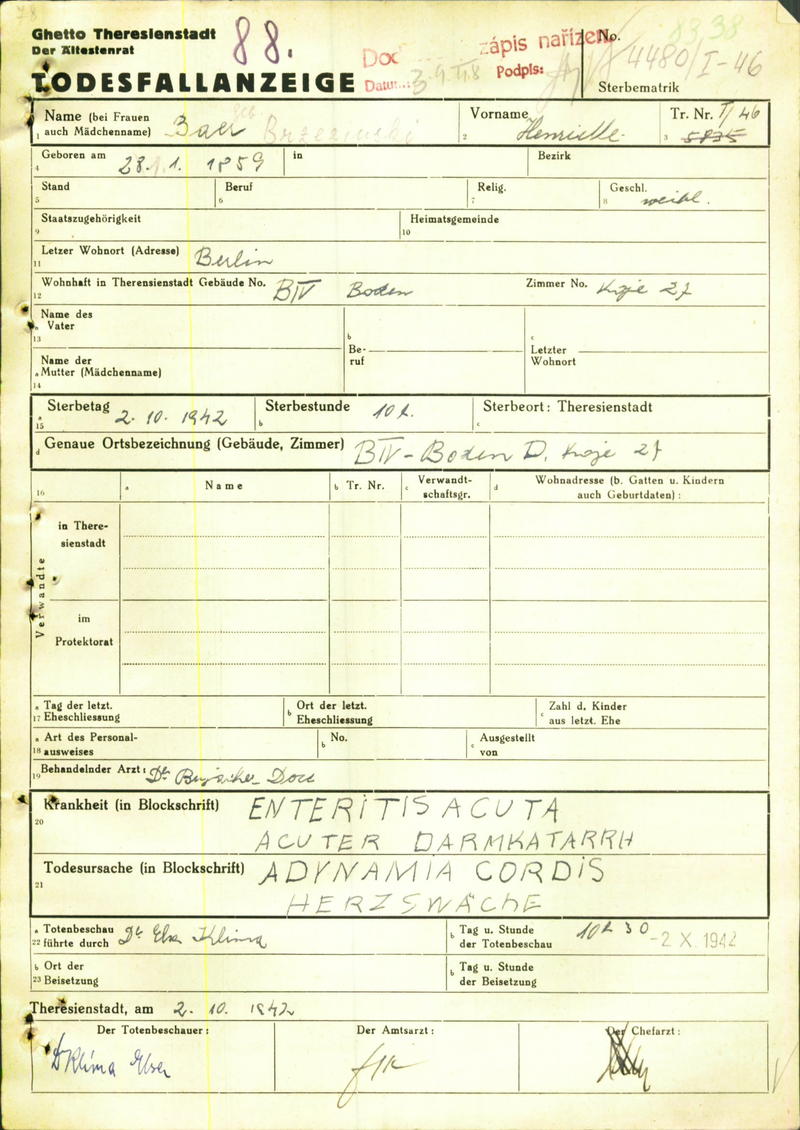 78
Ghetto Theresienstadt
Der Ältestenrat
88.
TODESFALLANZEIGE
zápis nařízen
Podpis:
Datum
83,38
No.
4480/I-46
Sterbematrik
Name (bei Frauen auch Mädchenname) Baer
Vorname Henriette.
Tr. Nr. I/46
1
2
3 5835
Geboren am 28. 1. 1859
in
Bezirk
4
Stand
Beruf
Relig.
Geschl. weibl.
5
6
7
8
Staatszugehörigkeit
Heimatsgemeinde
9
10
Letzer Wohnort (Adresse) Berlin
11
Wohnhaft in Theresienstadt Gebäude No. BIV Boden
Zimmer No. Koje 27
12
Name des Vater
13
b Beruf
c Letzter Wohnort
Name der Mutter (Mädchenname)
14
a 15 Sterbetag 2. 10. 1942
b Sterbestunde 10 h.
c Sterbeort: Theresienstadt
d Genaue Ortsbezeichnung (Gebäude, Zimmer) BIV - Boden D, Koje 27
16
a Name
b Tr. Nr.
c Verwandtschaftsgr.
d Wohnadresse (b. Gatten u. Kindern auch Geburtdaten):
Verwandte
in Theresienstadt
im Protektorat
a 17 Tag der letzt. Eheschliessung
b Ort der letzt. Eheschliessung
c Zahl d. Kinder aus letzt. Ehe
a 18 Art des Personalausweises
b No.
c Ausgestellt von
19 Behandelnder Arzt: Dr.
Krankheit (in Blockschrift) ENTERITIS ACUTA
20
ACUTER DARMKATARRH
Todesursache (in Blockschrift) ADYNAMIA CORDIS
21
HERZSWÄCHE
a 22 Totenbeschau führte durch Dr Elsa Klima
b Tag u. Stunde der Totenbeschau 10h 30 -2 X. 1942
b 23 Ort der Beisetzung
b Tag u. Stunde der Beisetzung
Theresienstadt, am 2. 10. 1942
Der Totenbeschauer:
Der Amtsarzt:
Der Chefarzt:
Dr Klima Elsa